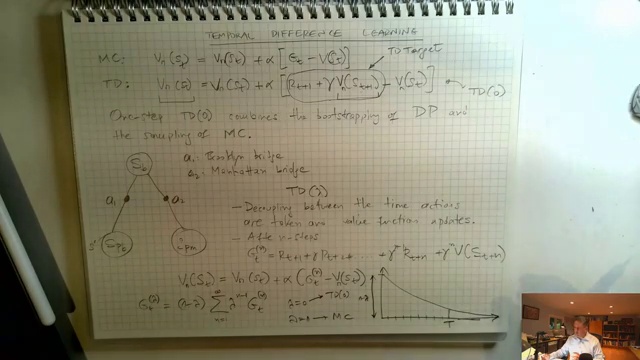 TEMPORAL DIFFERENCE LEARNING
MC: Vπ(St) = Vπ(St) + α [Gt - V(St)]
TD Target
TD: Vπ(St) = Vπ(St) + α [Rt+1 + γ Vπ(St+1) - Vπ(St)]
TD(0)
One-step TD(0) combines the bootstrapping of DP and
the sampling of MC.
a1: Brooklyn bridge
a2: Manhattan bridge
a1
a2
TD(λ)
- Decoupling between the time actions
are taken and value function updates.
- After n-steps
Gt(n) = Rt+1 + γ Rt+2 + ... + γ^n-1 Rt+n + γ^n V(St+n)
Vπ(St) = Vπ(St) + α (Gt(n) - Vπ(St))
Gt(λ) = (1-λ) ∑ n=1 λ^n-1 Gt(n)
λ=0 → TD(0)
λ=1 → MC
1-λ
T